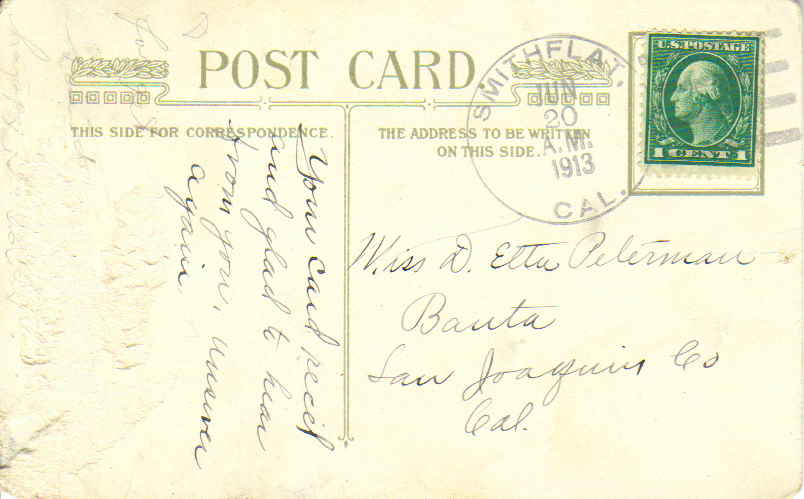 POST CARD
THIS SIDE FOR CORRESPONDENCE.
THE ADDRESS TO BE WRITTEN
ON THIS SIDE.
SMITHFLAT,
JUN
20
A.M.
1913
CAL.
U.S. POSTAGE
1 CENT 1
Your card recei
and glad to hear
from you,
again.
Miss D. Etta Peterman
Banta
San Joaquin Co
Cal.